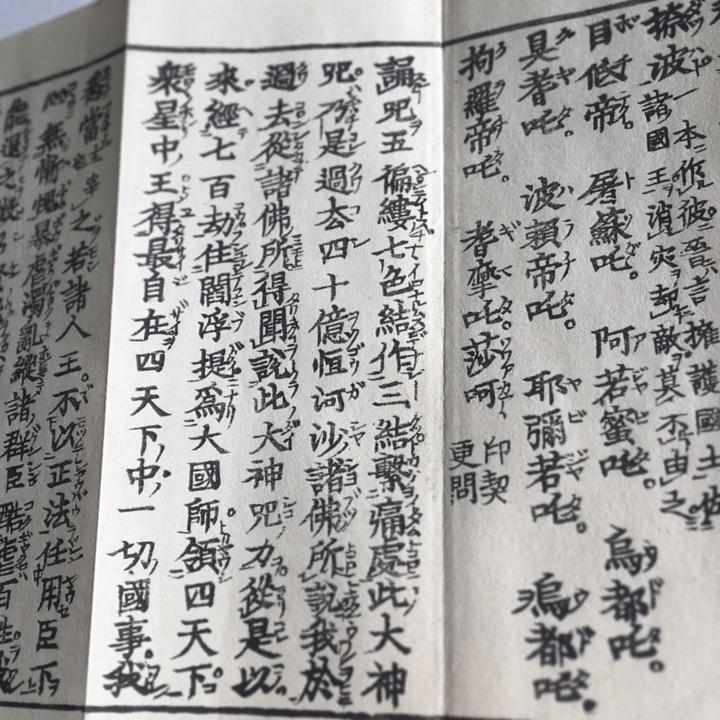 波一本作彼晉言擁護國土佐
諸國王消災却敵莫不由之
目低帝。屠蘇吒。阿若蜜吒。烏都吒。
具耆吒。波賴帝吒。耶彌若吒。都吒。
拘羅帝吒。耆摩吒。莎呵印契更問
誦呪五徧縷七色結作三結繫痛處此大神
呪。乃是過去四十億恒河沙諸佛所說我於
過去從諸佛所得聞說此大神呪力從是以
來經七百劫住閻浮提爲大國師領四天下
衆星中王得最自在四天下中一切國事。我
當之若諸人王。不以正法任用臣下
心無慚愧暴虐濁亂縱諸群臣